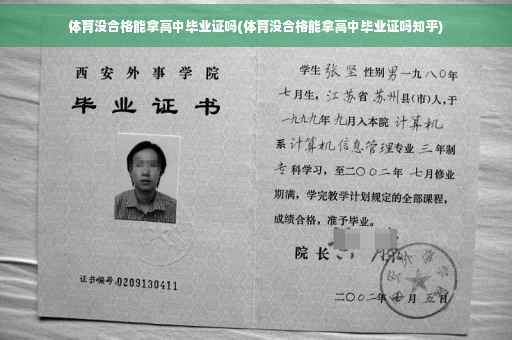 体育没合格能拿高中毕业证吗(体育没合格能拿高中毕业证吗知乎)
西安外事学院
毕业证书
证书编号:0209130411
学生 张坚 性别 男 一九八〇年
七月生，江苏省 苏州县(市)人，于
一九九九年 九月入本院 计算机
系 计算机信息管理专业 三 年制
专 科学习，至二〇〇二年 七月修业
期满，学完教学计划规定的全部课程，
成绩合格，准予毕业。
院长
二〇〇二年 月 五日